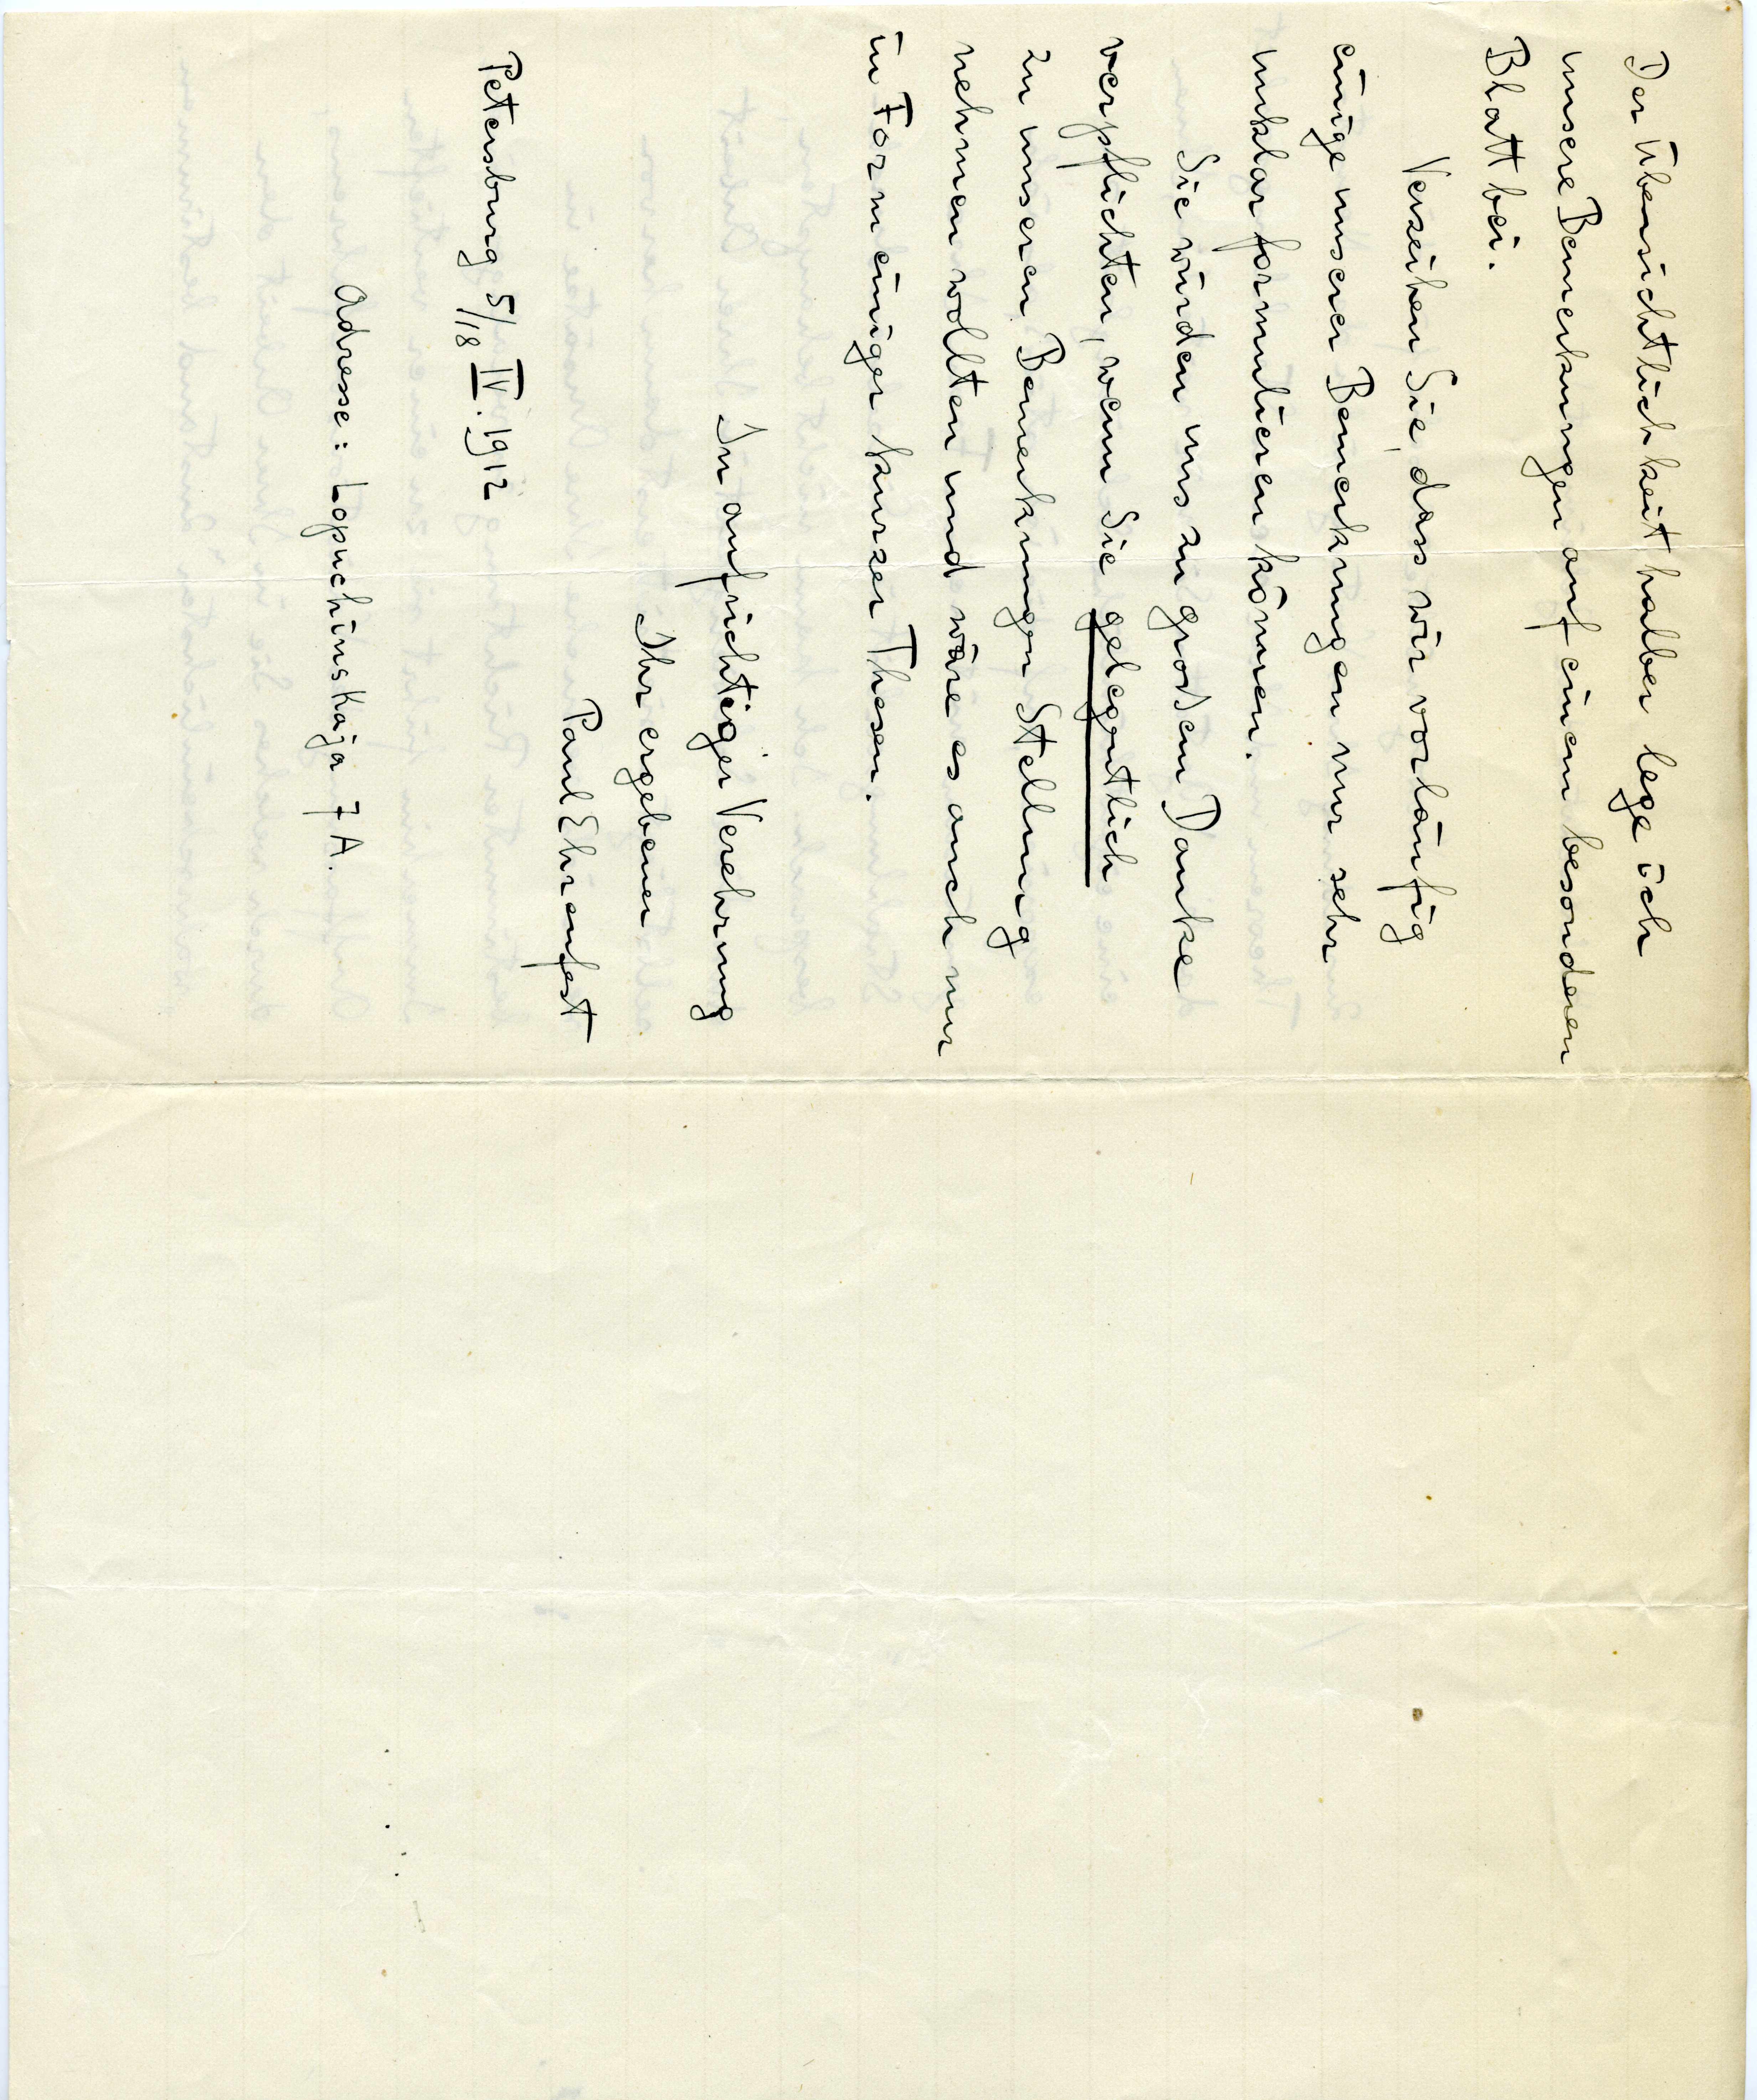 Der Übersichtlichkeit halber lege ich
unsere Bemerkungen auf einem besonderen
Blatt bei.
Verzeihen Sie, dass wir vorläufig
einige unserer Bemerkungen nur sehr
unklar formulieren können.
Sie würden uns zu grossem Danke
verpflichten, wenn Sie gelegentlich
zu unseren Bemerkungen Stellung
nehmen wollten und wäre es auch nur
in Form einiger kurzer Thesen.
In aufrichtiger Verehrung
Ihr ergebener
Paul Ehrenfest
Petersburg 5/18 IV. 1912
Adresse: Lopuchinskaja 7A.